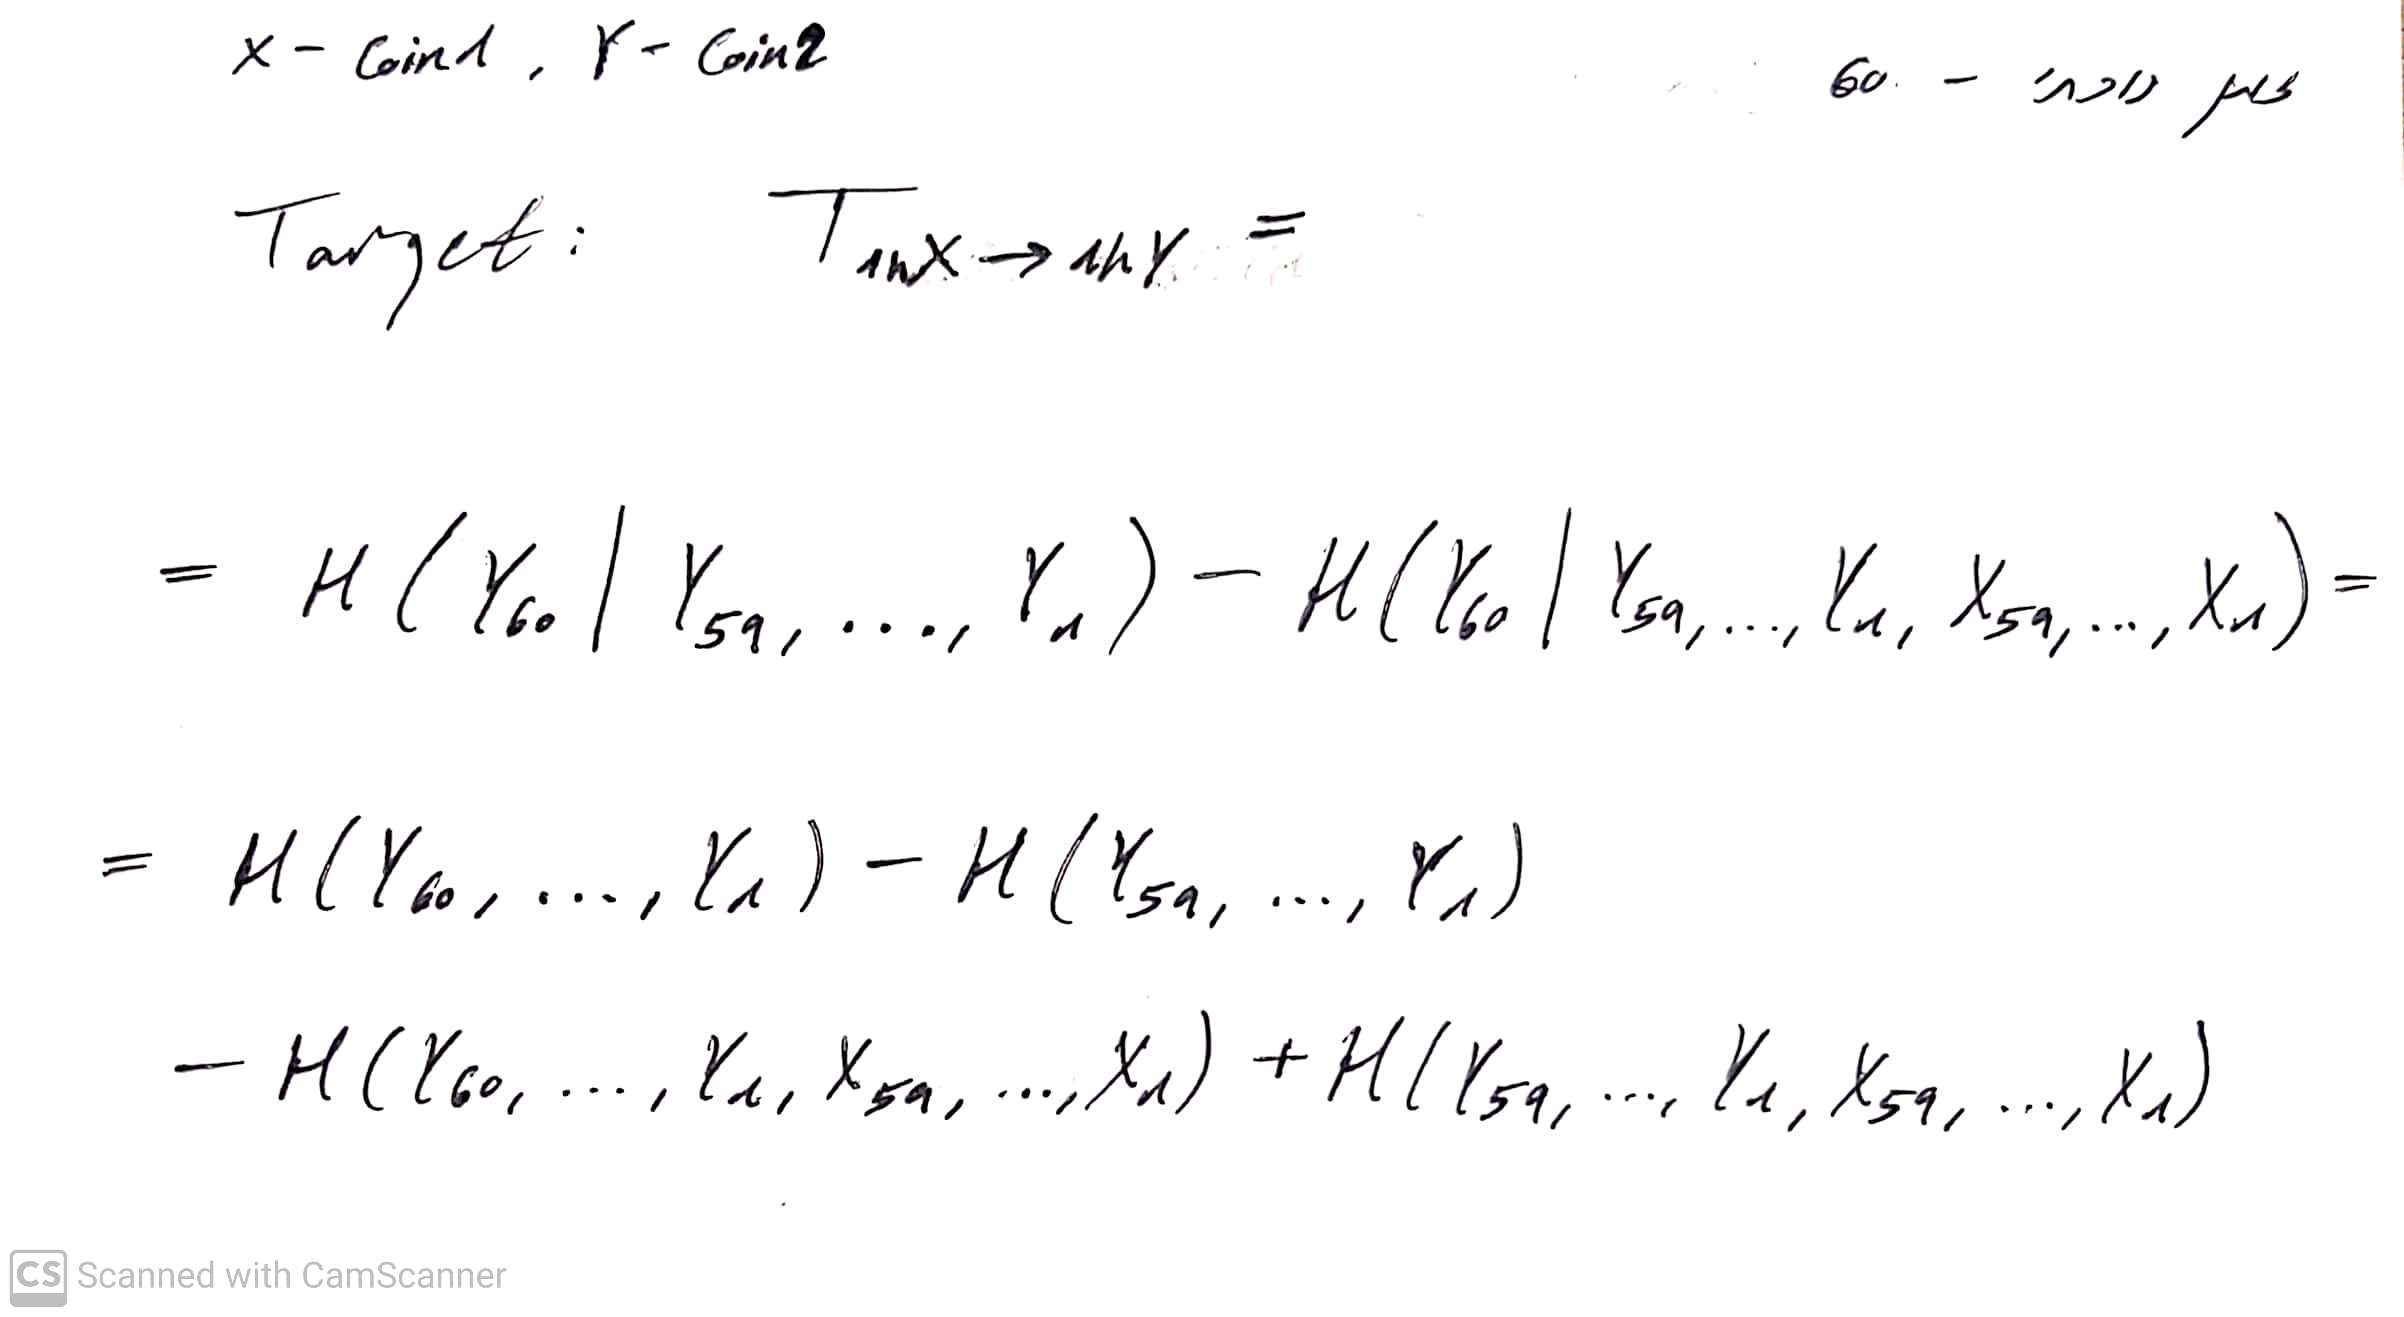 X - Coin1, Y - Coin2
60 - זמן נוכחי
Target: T₁ₕX→₁ₕY =
= H(Y₆₀ | Y₅₉, ..., Y₁) - H(Y₆₀ | Y₅₉, ..., Y₁, X₅₉, ..., X₁) =
= H(Y₆₀, ..., Y₁) - H(Y₅₉, ..., Y₁)
- H(Y₆₀, ..., Y₁, X₅₉, ..., X₁) + H(Y₅₉, ..., Y₁, X₅₉, ..., X₁)
CS Scanned with CamScanner